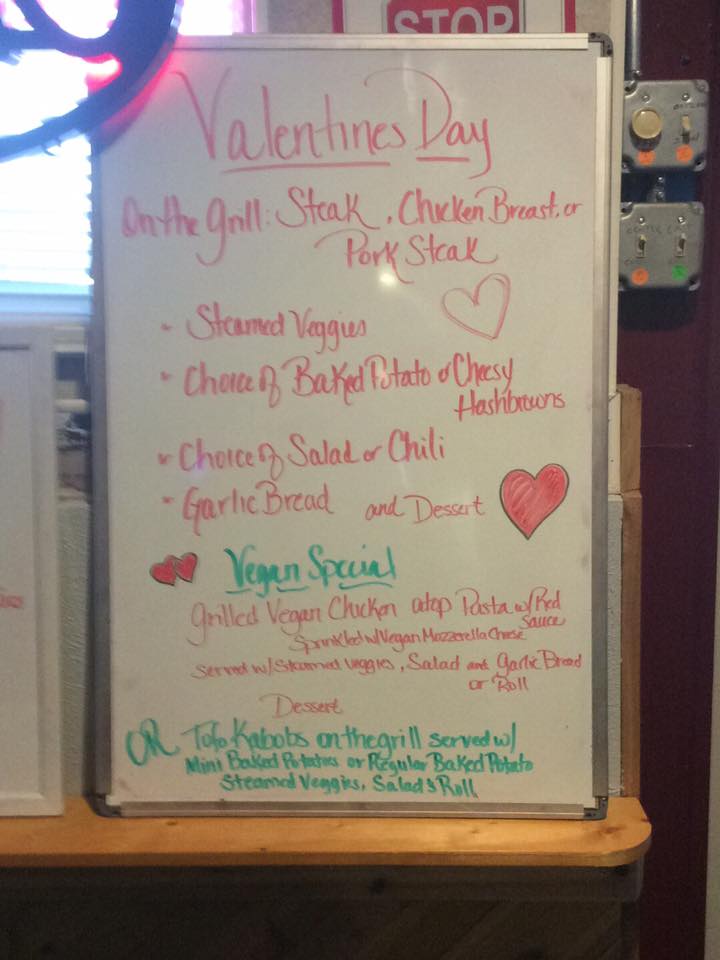 STOP
Valentines Day
On the Grill: Steak, Chicken Breast, or
Pork Steak
- Steamed Veggies
- Choice of Baked Potato or Cheesy
Hashbrowns
- Choice of Salad or Chili
- Garlic Bread and Dessert
Vegan Special
Grilled Vegan Chicken atop Pasta w/Red
Sauce
Sprinkled w/Vegan Mozzerella Cheese
Served w/Steamed Veggies, Salad and Garlic Bread
or Roll
Dessert
OR Tofo Kabobs on the grill served w/
Mini Baked Potatoes or Regular Baked Potato
Steamed Veggies, Salad & Roll